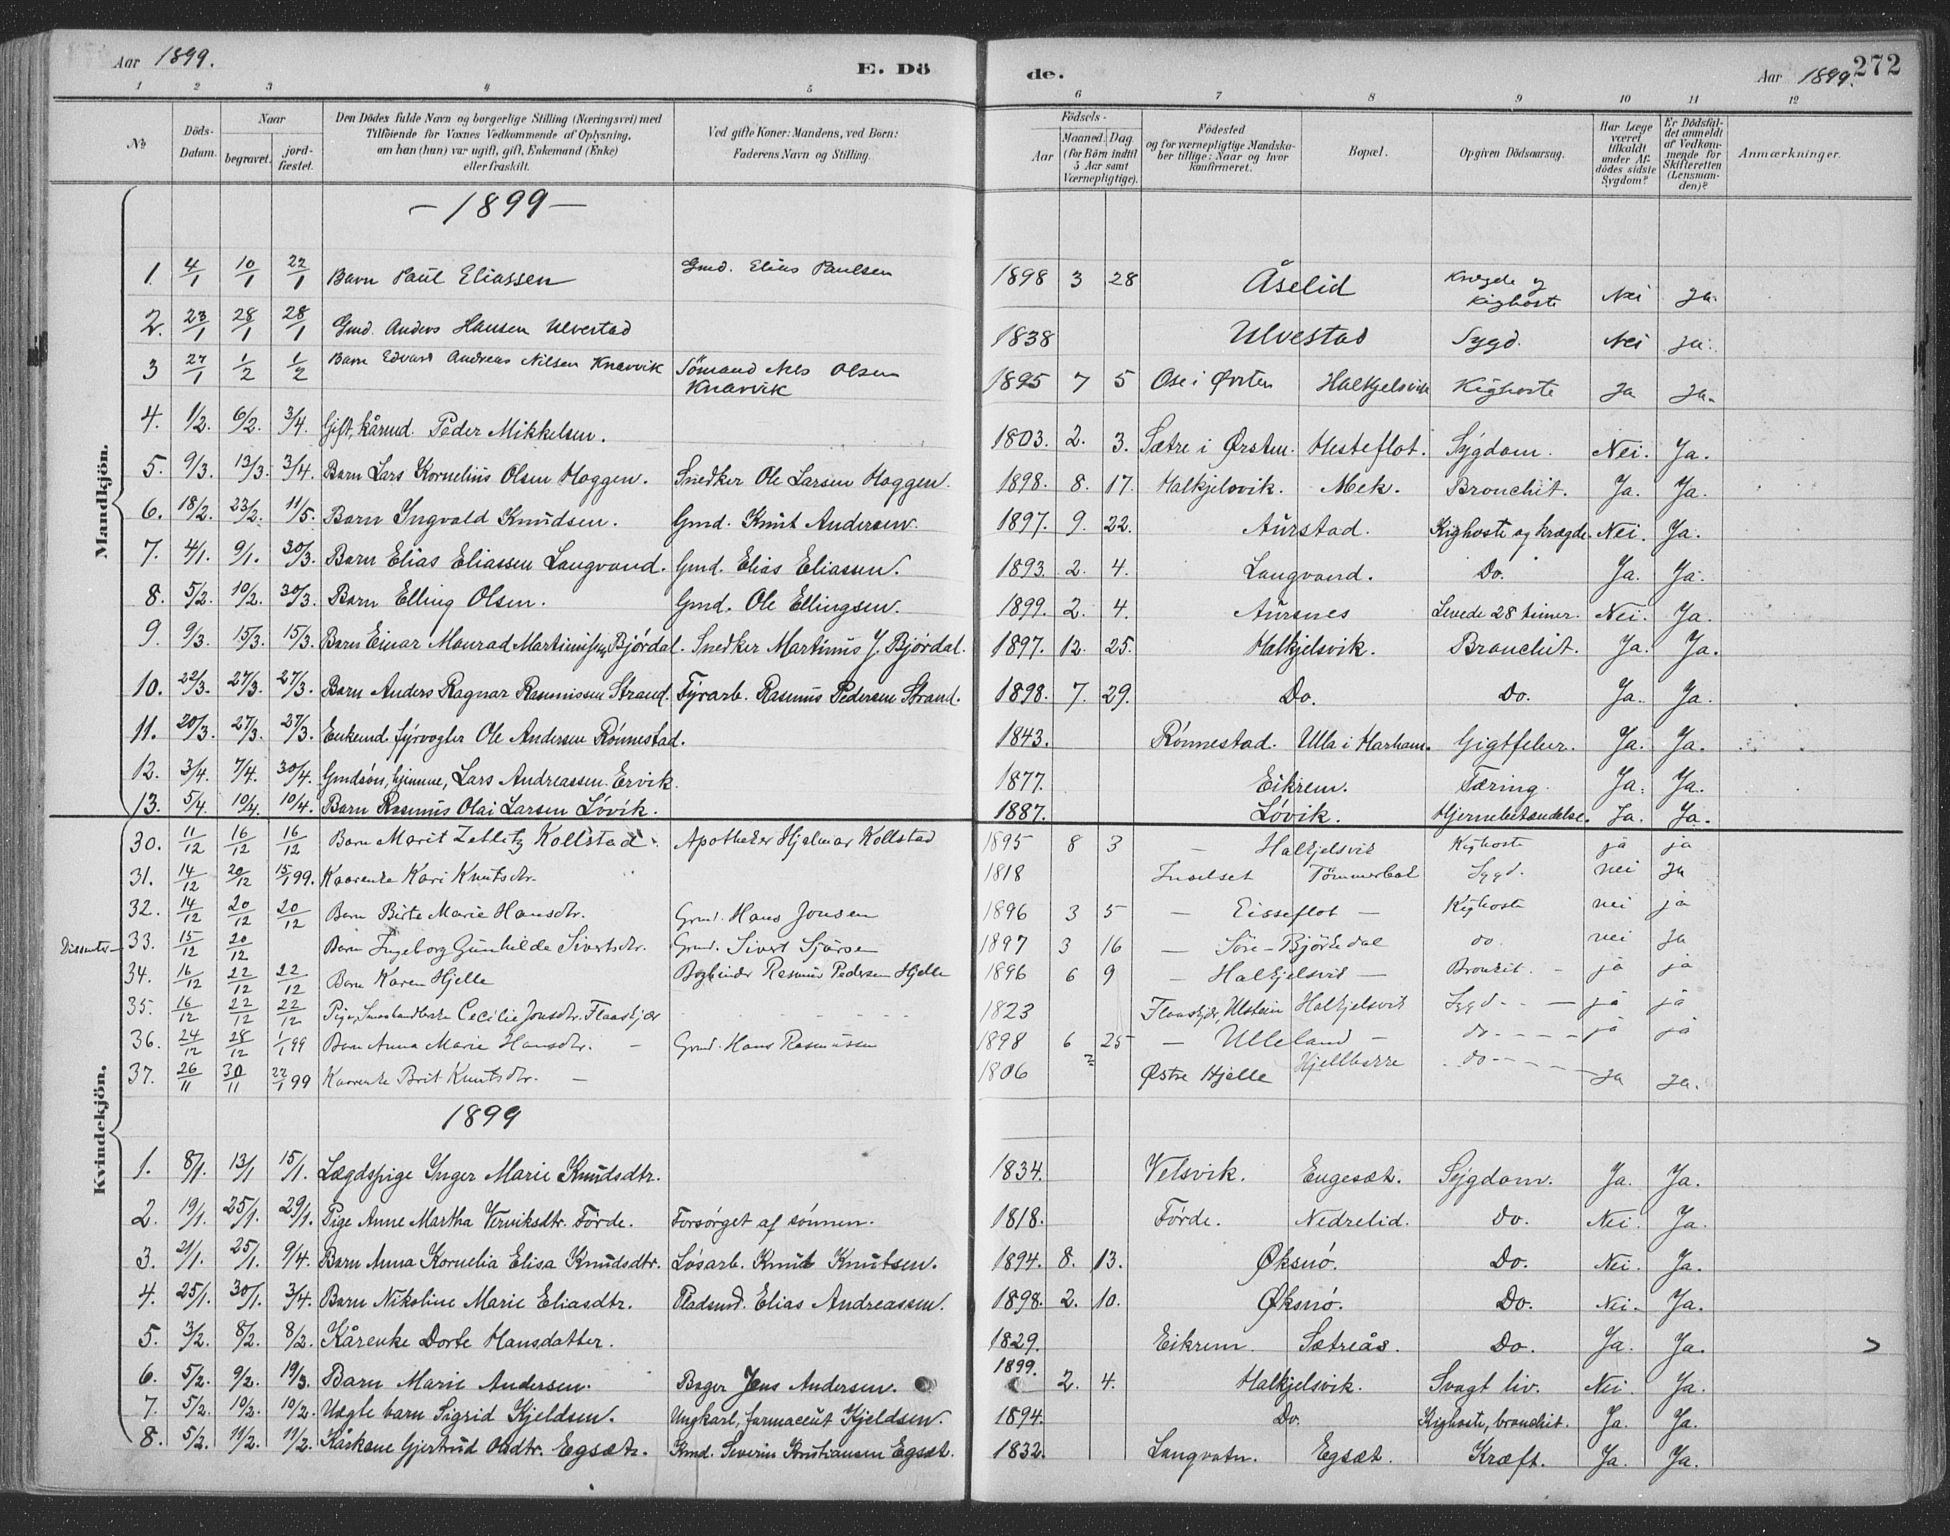 Aar 1899. E. Dö
de. Aar 1899. 272
1 2 3 4 5 6 7 8 9 10 11 12
No Döds-Datum. Naar begravet. jord-fæstet. Den Dödes fulde Navn og borgerlige Stilling (Næringsvei) med Tilföiende for Voxnes Vedkommende af Oplysning, om han (hun) var ugift, gift, Enkemand (Enke) eller fraskilt. Ved gifte Koner: Mandens, ved Börn: Faderens Navn og Stilling. Födsels- Aar Maaned. Dag (for Börn indtil 5 Aar samt Værnepligtige). Födested og for værnepligtige Mandska-ber tillige: Naar og hvor konfirmeret. Bopæl. Opgiven Dödsaarsag. Har Læge været tilkaldt under Af-dödes sidste Sygdom? Er Dödsfal-det anmeldt af Vedkom-mende for Skifteretten (Lensman-den)? Anmærkninger.
Mandkjön.
— 1899 —
1. 4/1 10/1 22/1 Barn Paul Eliassen Gmd. Elias Paulsen 1898 3 28 Åselid Krægde og Kighoste Nei Ja.
2. 23/1 28/1 28/1 Gmd. Anders Hansen Ulvestad 1838 Ulvestad Sygd. Nei Ja.
3 27/1 1/2 1/2 Barn Edvard Andreas Nilsen Knarvik Sömand Nils Olsen Knarvik 1895 7 5 Ose i Örsten Halkjelsvik Kighoste Ja Ja.
4. 1/2. 6/2. 3/4. Gift, kårmd. Peder Mikkelsen. 1803. 2. 3. Sætre i Örsten. Hesteflot. Sygdom. Nei. Ja.
5. 9/3. 13/3. 3/4. Barn Lars Kornelius Olsen Haggen. Snedker Ole Larsen Haggen. 1898. 8. 17. Halkjelsvik. Mek. Bronchit. Ja. Ja.
6. 18/2. 23/2. 11/5. Barn Ingvald Knudsen. Gmd. Knut Andersen. 1897. 9. 22. Aurstad. Kighoste og krægde. Nei. Ja.
7. 4/1. 9/1. 30/3. Barn Elias Eliassen Langvand. Gmd. Elias Eliassen. 1893. 2. 4. Langvand. Do. Ja. Ja.
8. 5/2. 10/2. 30/3. Barn Elling Olsen. Gmd. Ole Ellingsen. 1899. 2. 4. Aursnes Levede 28 timer. Nei. Ja.
9. 9/3. 15/3. 15/3. Barn Einar Monrad Martinussen Bjórdal. Snedker Martinus J. Bjórdal. 1897. 12. 25. Halkjelsvik. Bronchit. Ja. Ja.
10. 22/3. 27/3. 27/3. Barn Anders Ragnar Rasmussen Strand. Fyrarb. Rasmus Pedersen Strand. 1898. 7. 29. Do. Do. Ja. Ja.
11. 20/3. 27/3. 27/3. Enkemd. fyrvogter Ole Andersen Rónnestad. 1843. Rónnestad. Ulla i Harham. Gigtfeber. Ja. Ja.
12. 3/4. 7/4. 30/4. Gmdsón, hjemme, Lars Andreassen Ervik. 1877. Eikrem. Tæring. Ja. Ja.
13. 5/4. 10/4. 10/4. Barn Rasmus Olai Larsen Lóvik. 1887. Lóvik. Hjernebetændelse. Ja. Ja.
Kvindekjön.
30. 11/12 16/12 16/12 Barn Marit Zetlitz Kollstad. Apotheker Hjalmar Kollstad 1895 8 3 — Halkjelsvik Kighoste ja ja
31. 14/12 20/12 15/1 99. Kaarenke Kari Knutsdtr. 1818 Inselset Tömmerbak Sygd. nei Ja
32. 14/12 20/12 20/12 Barn Birte Marie Hansdtr. Grmd. Hans Jonsen 1896 3 5 — Eisseflot — Kighoste nei ja
Dissenter — 33. 15/12 20/12 Barn Ingeborg Gunhilde Sivertsdtr. Grmd. Sivert Sjursen 1897 3 16 — Söre-Björkedal do. nei Ja
34. 16/12 22/12 22/12 Barn Karen Hjelle Bogbinder Rasmus Pedersen Hjelle 1896 6 9 — Halkjelsvik — Bronkit. — ja ja
35. 16/12 22/12 22/12 Pige, Cecilie Jonsdtr. Flaaskjær 1823 Flaaskjær, Ulstein Halkjelsvik Sygd. — ja ja
36. 24/12 28/12 1/1 99 Barn Anna Marie Hansdtr. — Grmd. Hans Rasmussen 1898 6 25 — Ulleland — do ja ja
37. 26/11 30/11 22/1 99 Kaarenke Brit Knutsdtr. — 1806 Østre Hjelle Hjellbakke do Ja Ja.
1899
1. 8/1. 13/1 15/1. Lægdspige Inger Marie Knudsdtr. 1834. Velsvik. Engesæt. Sygdom. Ja. Ja.
2. 19/1. 25/1. 29/1. Pige Anne Martha Verviksdtr. Förde. Forsörget af sónnen. 1818. Förde. Nedrelid. Do. Nei. Ja.
3. 21/1. 25/1. 9/4. Barn Anna Kornelia Elisa Knudsdtr. Lósarb. Knut Knutsen. 1894. 8. 13. Øksnó. Do. Nei. Ja.
4. 25/1. 30/1. 3/4. Barn Nikoline Marie Eliasdtr. Pladsmd. Elias Andreassen. 1898. 2. 10. Øksnó. Do. Nei. Ja.
5. 3/2. 8/2. 8/2. Kårenke Dorte Hansdatter. 1829. Eikrem. Sætreås. Do. Ja. Ja.
6. 5/2. 9/2. 19/3. Barn Marie Andersen. Bager Jens Andersen. 1899. 2. 4. Halkjelsvik. Svagt liv. Nei. Ja.
7. 5/2. 10/2. 10/2. Uægte barn Sigrid Kjeldsen. Ungkarl, farmaceut Kjeldsen. 1894. Do. Kighoste, bronchit. Ja. Ja.
8. 5/2. 11/2. 11/2. Kårkone Gjertrud Olsdtr. Egsæt. Kmd. Severin Kristiansen Egsæt. 1832. Langvatn. Egsæt. Kræft. Ja. Ja.